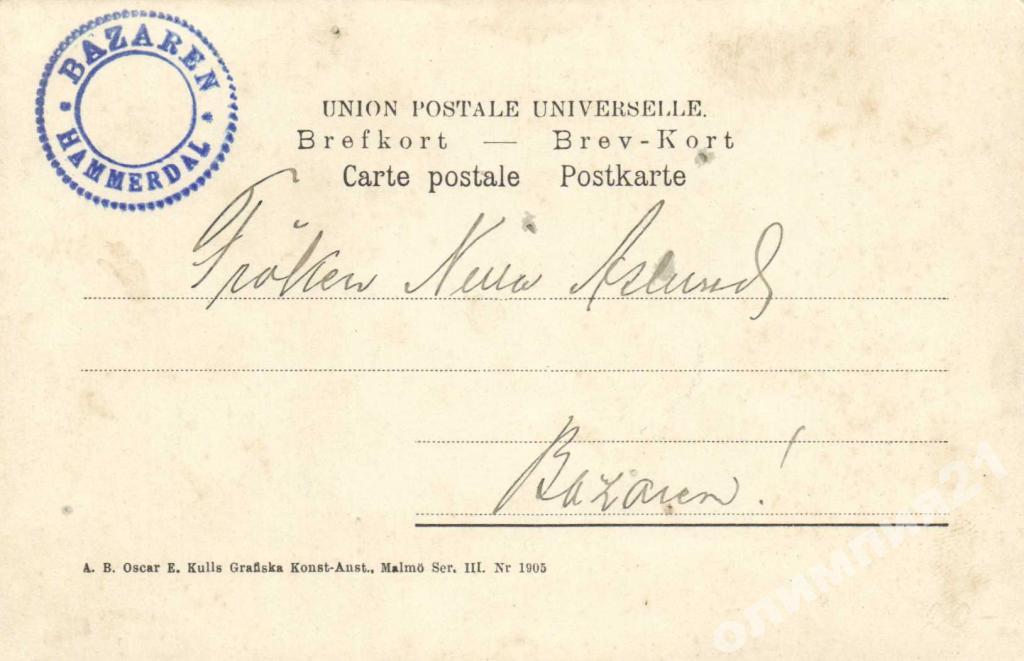 BAZAREN
* HAMMERDAL *
UNION POSTALE UNIVERSELLE.
Brefkort — Brev-Kort
Carte postale Postkarte
Fröken Aslund
Bazaren!
A. B. Oscar E. Kulls Grafiska Konst-Anst., Malmö Ser. III. Nr 1905
олимпия21